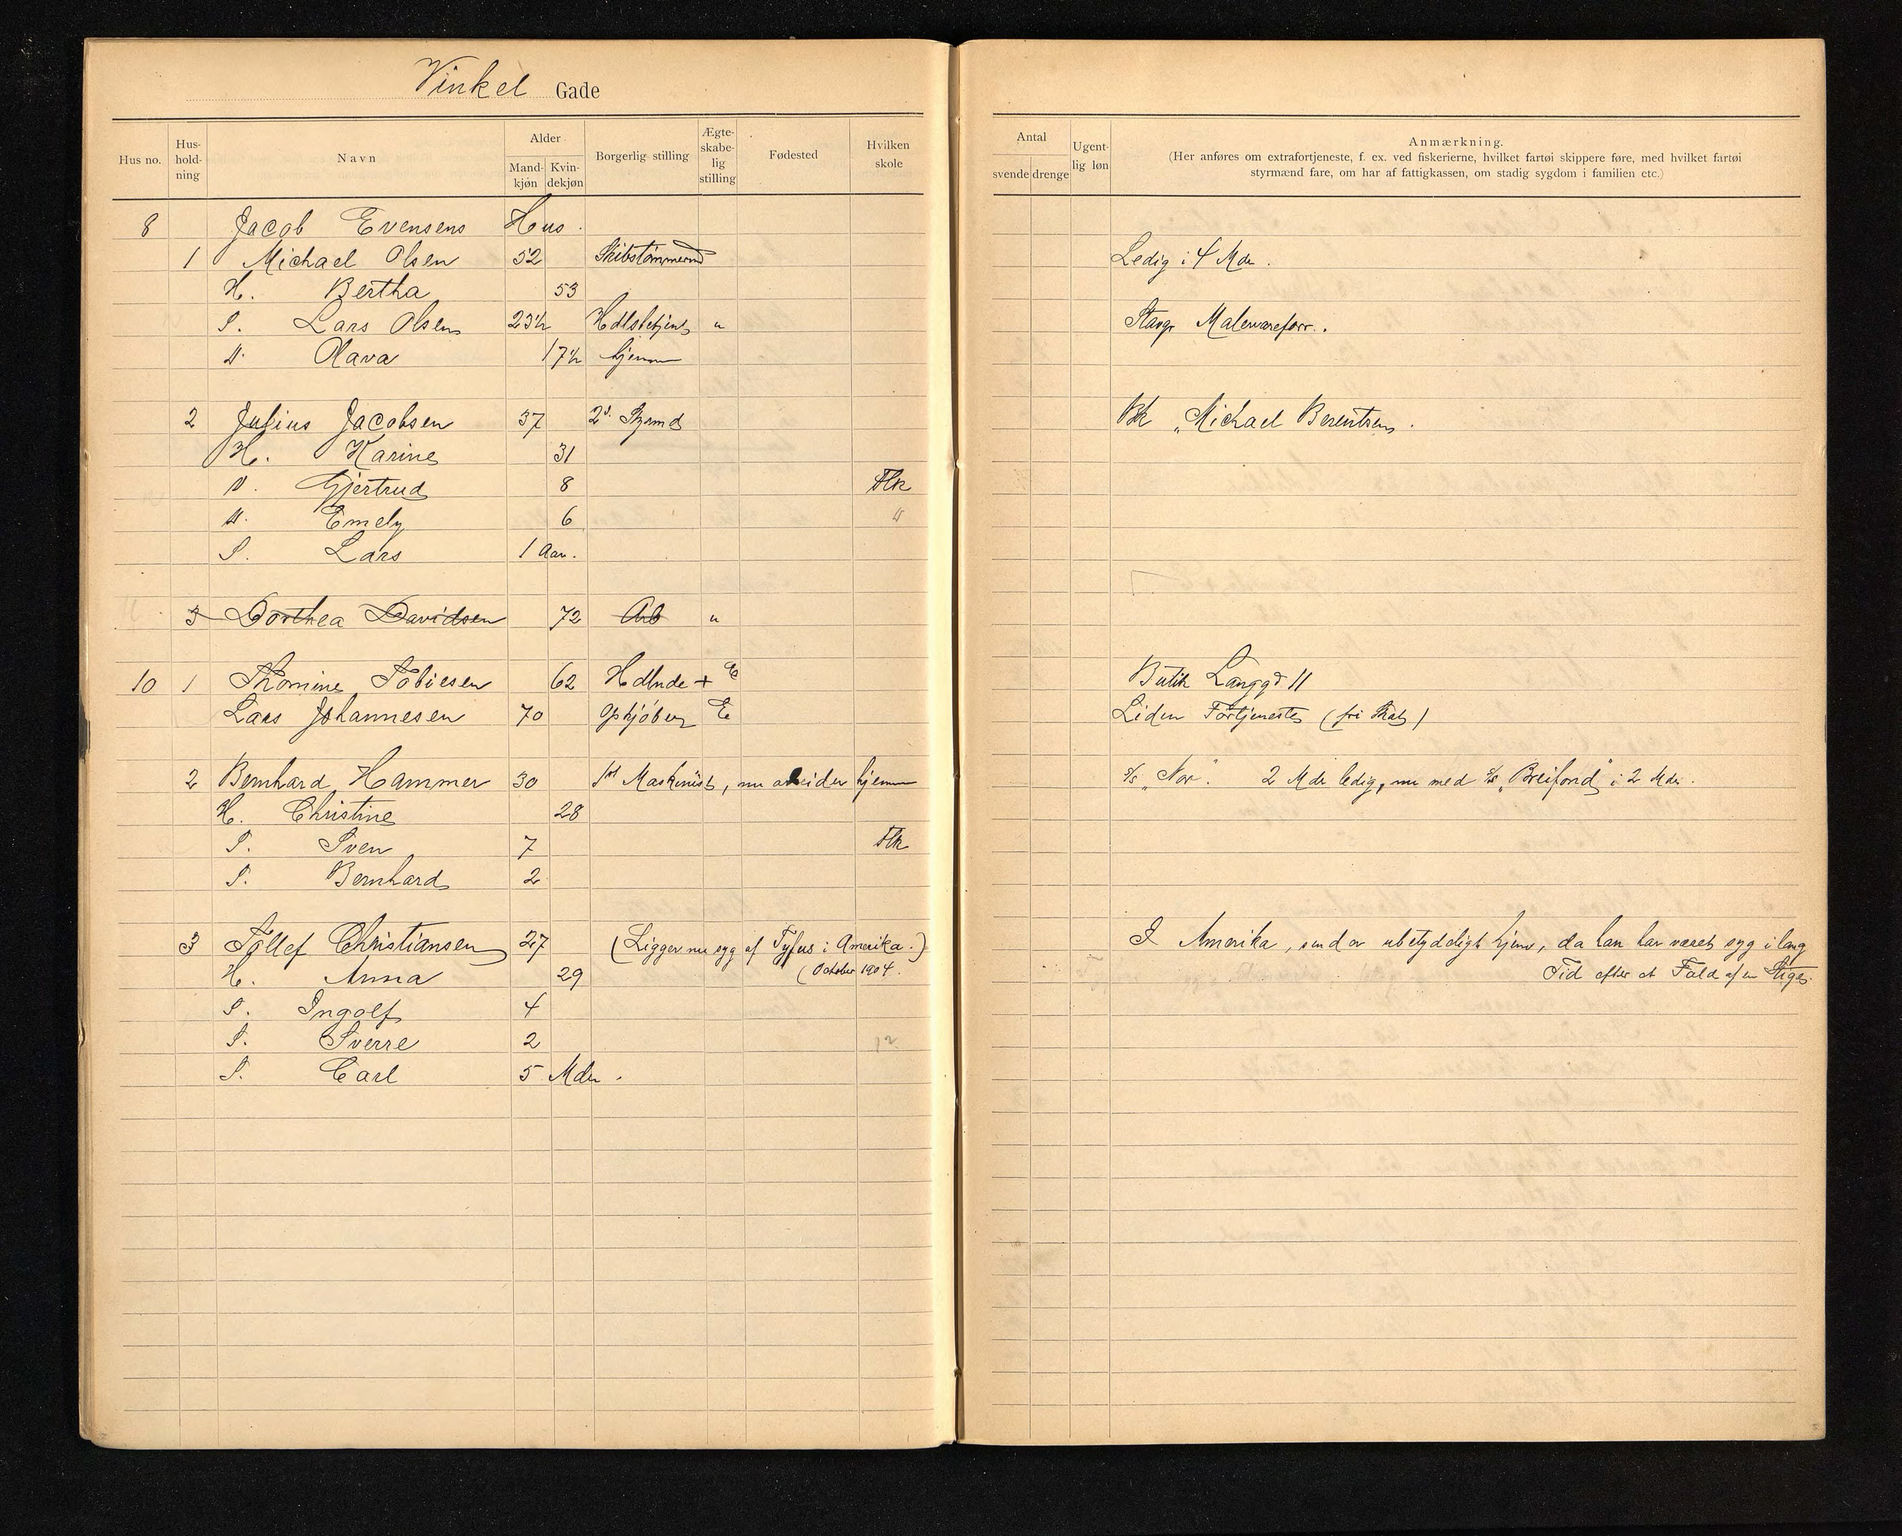 Vinkel Gade
Hus no. Hus-hold-ning Navn Alder Mand-kjøn Kvin-dekjøn Borgerlig stilling Ægte-skabe-lig stilling Fødested Hvilken skole
Antal svende drenge Ugent-lig løn Anmærkning.
(Her anføres om extrafortjeneste, f. ex. ved fiskerierne, hvilket fartøi skippere føre, med hvilket fartøi
styrmænd fare, om har af fattigkassen, om stadig sygdom i familien etc.)
8 Jacob Evensens Hus.
1 Michael Olsen 52 Skibstømmermd Ledig i 4 Mdr.
H. Bertha 53
S. Lars Olsen 23½ Hdlsbetjent u Stavgr Malervareforr..
D. Olava 17½ hjemme
2 Julius Jacobsen 37 2d. Styrmd Bk „Michael Berentsen.
H. Karine 31
D. Gjertrud 8 Flk
D. Emely 6 "
S. Lars 1 Aar.
3 Dorthea Davidsen 72 Arb u
10 1 Thomine Tobiesen 62 Hdlnde + E Butik Langgd 11
Lars Johannesen 70 Opkjøber E Liden Fortjeneste (fri Skat)
2 Bernhard Hammer 30 1st Maskinist, nu arbeider hjemme s/s „Nor". 2 Mdr ledig, nu med s/s „Breifond" i 2 Mdr.
H. Christine 28
S. Sven 7 Flk
S. Bernhard 2
3 Tollef Christiansen 27 (Ligger nu syg af Tyfus i Amerika.) I Amerika, sender ubetydeligt hjem, da han har været syg i lang
H. Anna 29 (October 1904. Tid efter et Fald af en Stige
S. Ingolf 4
S. Sverre 2 12
S. Carl 5 Mdr.